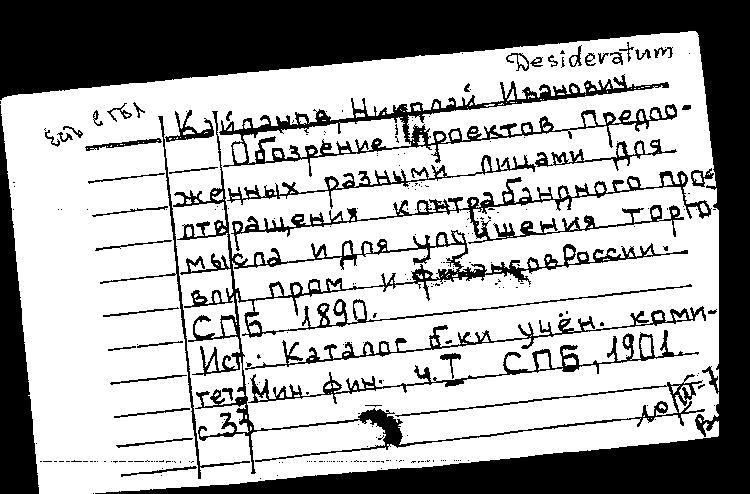 Desideratum
есть в ГБЛ
Кайданов, Николай Иванович.
Обозрение проектов, предло-
женных разными лицами для
отвращения контрабандного про-
мысла и для улучшения торго-
вли, пром. и финансов России.
СПБ. 1890.
Ист.: Каталог б-ки учён. коми-
тета Мин. фин., ч. I. СПБ, 1901.
с 33
10/III-7